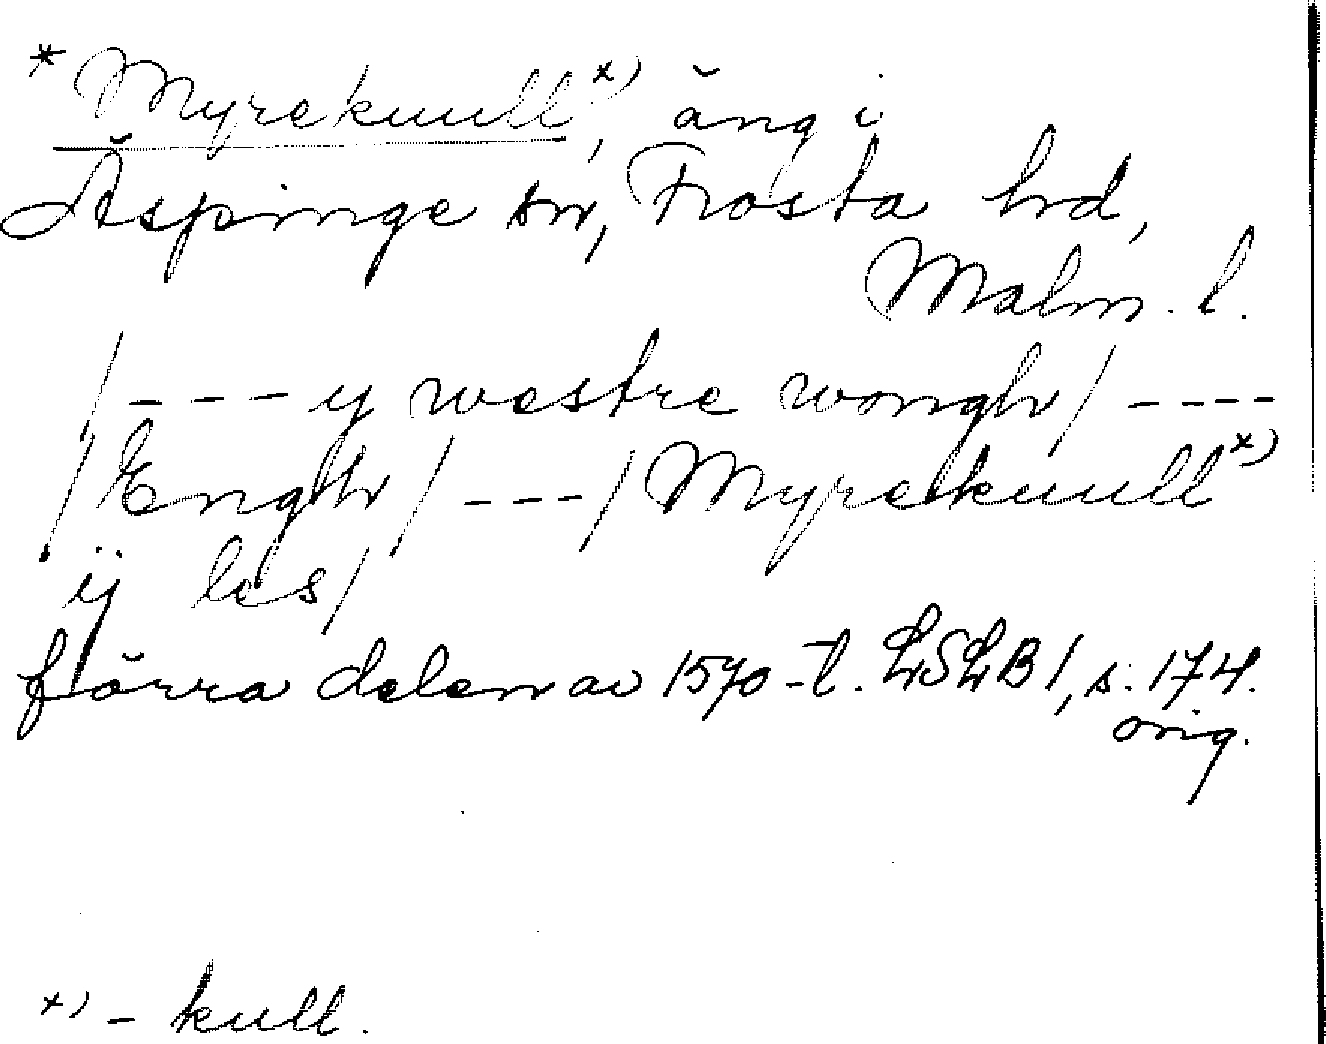 * Myrekuull x), äng i
Äspinge sn, Frosta hd,
Malm. l.
/ - - - y westre wongh / - - - -
/ Engh / - - - / Myrekuull x)
ÿ les /
förra delen av 1570-t. LSLB 1, s. 174.
orig.
x) - kull.